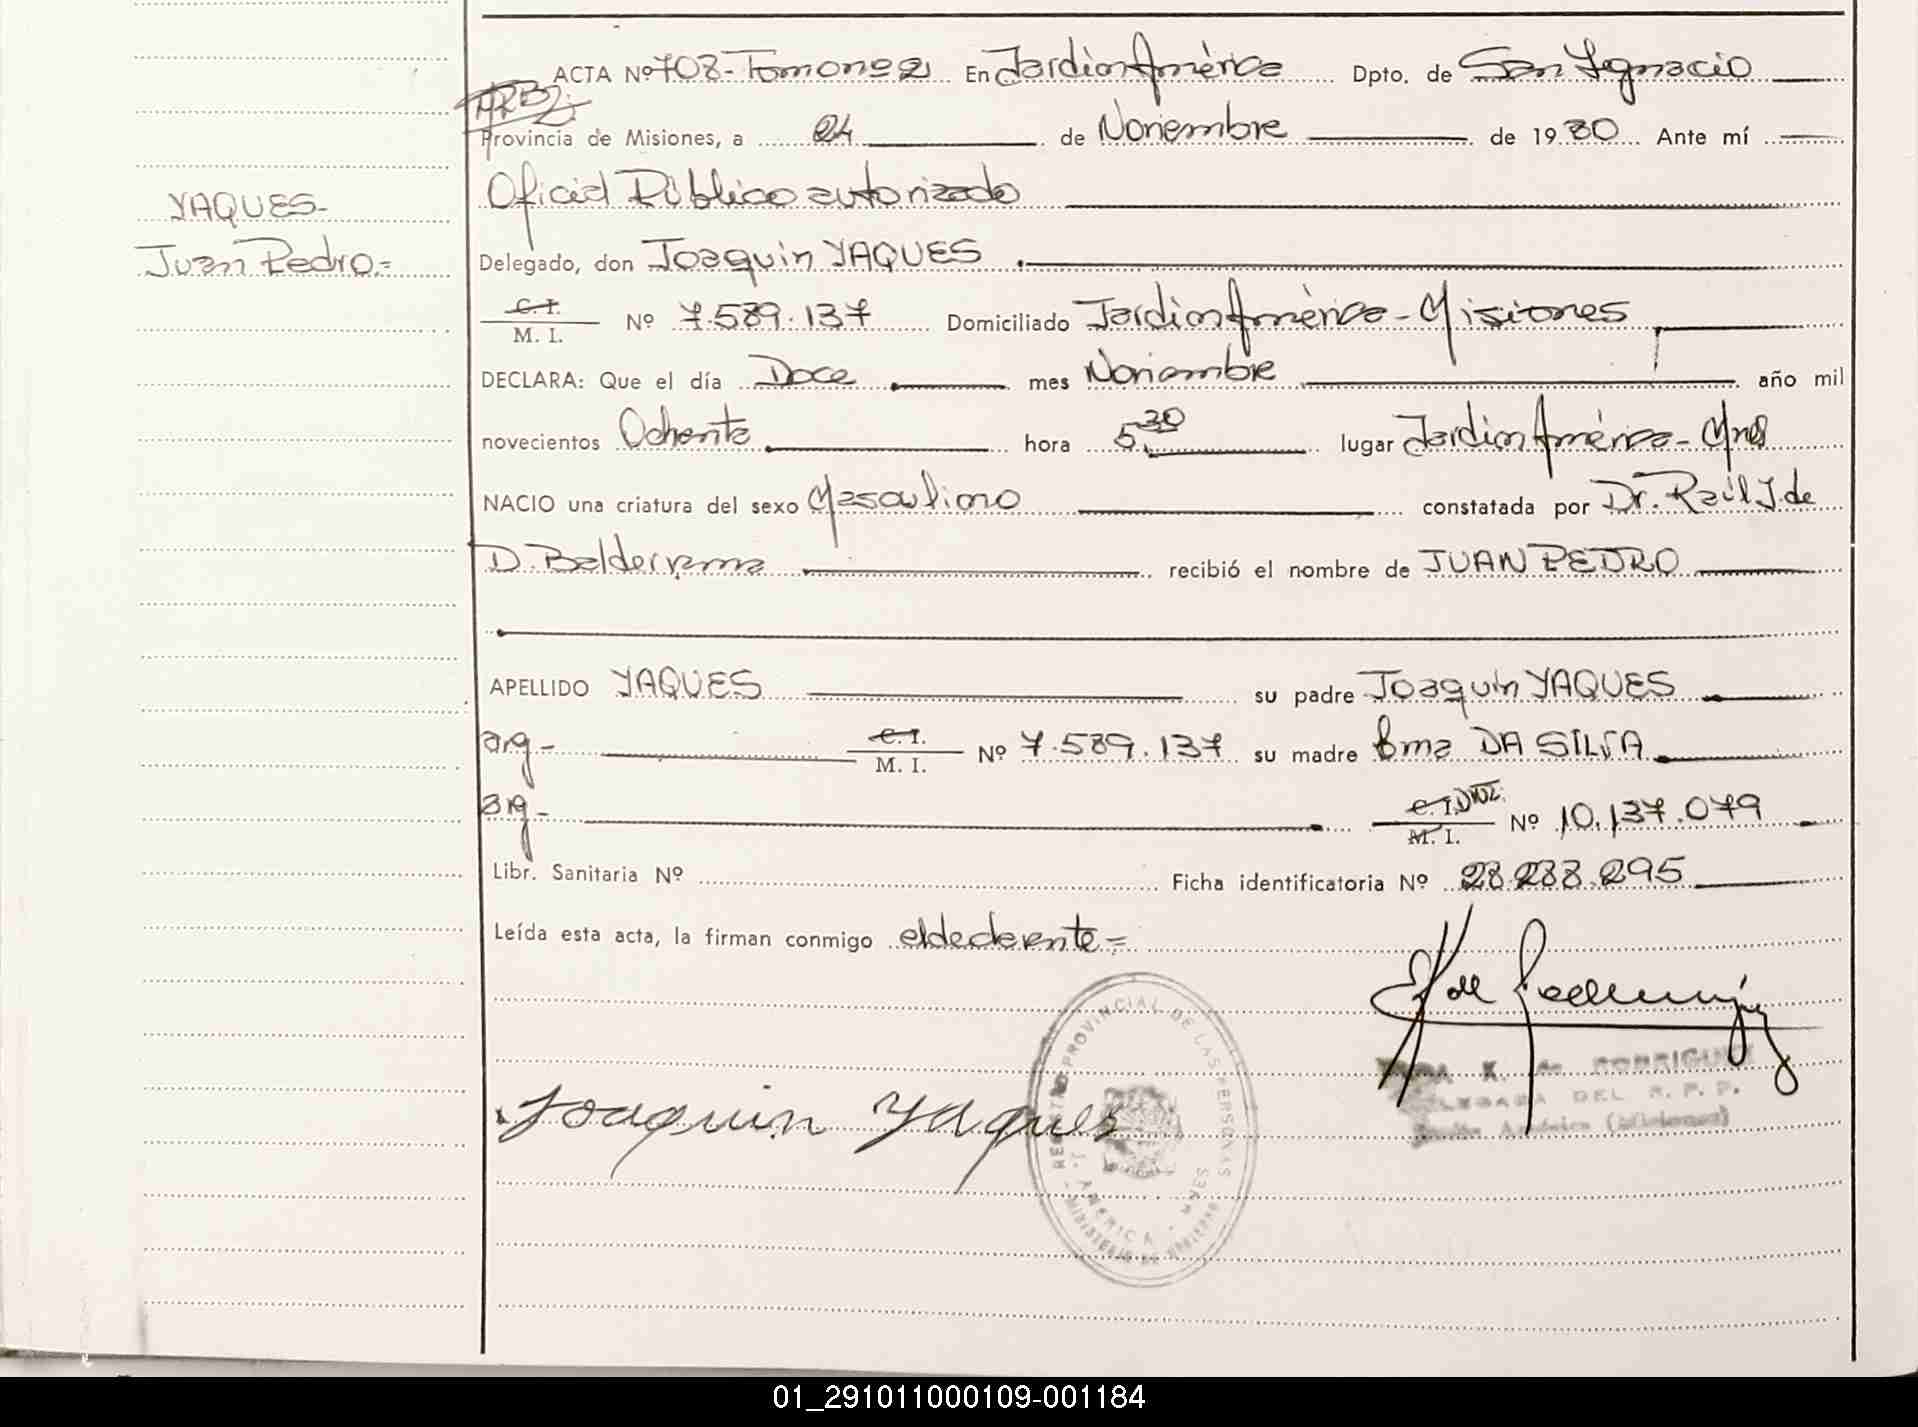 ACTA Nº 708 - Tomo nº 2 En Jardín América Dpto. de San Ignacio
Provincia de Misiones, a 24 de Noviembre de 1980 Ante mí
Oficial Público autorizado
YAQUES-
Delegado, don Joaquin YAQUES
Juan Pedro.=
C. I.
M. I. Nº 7.589.137 Domiciliado Jardín América - Misiones
DECLARA: Que el día Doce mes Noviembre año mil
novecientos Ochenta hora 5,30 lugar Jardín América - Mnes
NACIO una criatura del sexo Masculino constatada por Dr. Raúl J. de
D. Balderrama recibió el nombre de JUAN PEDRO
APELLIDO YAQUES su padre Joaquin YAQUES
arg - C. I. M. I. Nº 7.589.137 su madre Ema DA SILVA
arg - C. I. M. I. Nº 10.137.079
Libr. Sanitaria Nº Ficha identificatoria Nº 28.288.295
Leída esta acta, la firman conmigo el declarante =
REGISTRO PROVINCIAL DE LAS PERSONAS
J. AMERICA - MNES
Joaquin Yaques
K. de RODRIGUEZ
DELEGADA DEL R. P. P.
Jardín América (Misiones)
01_291011000109-001184